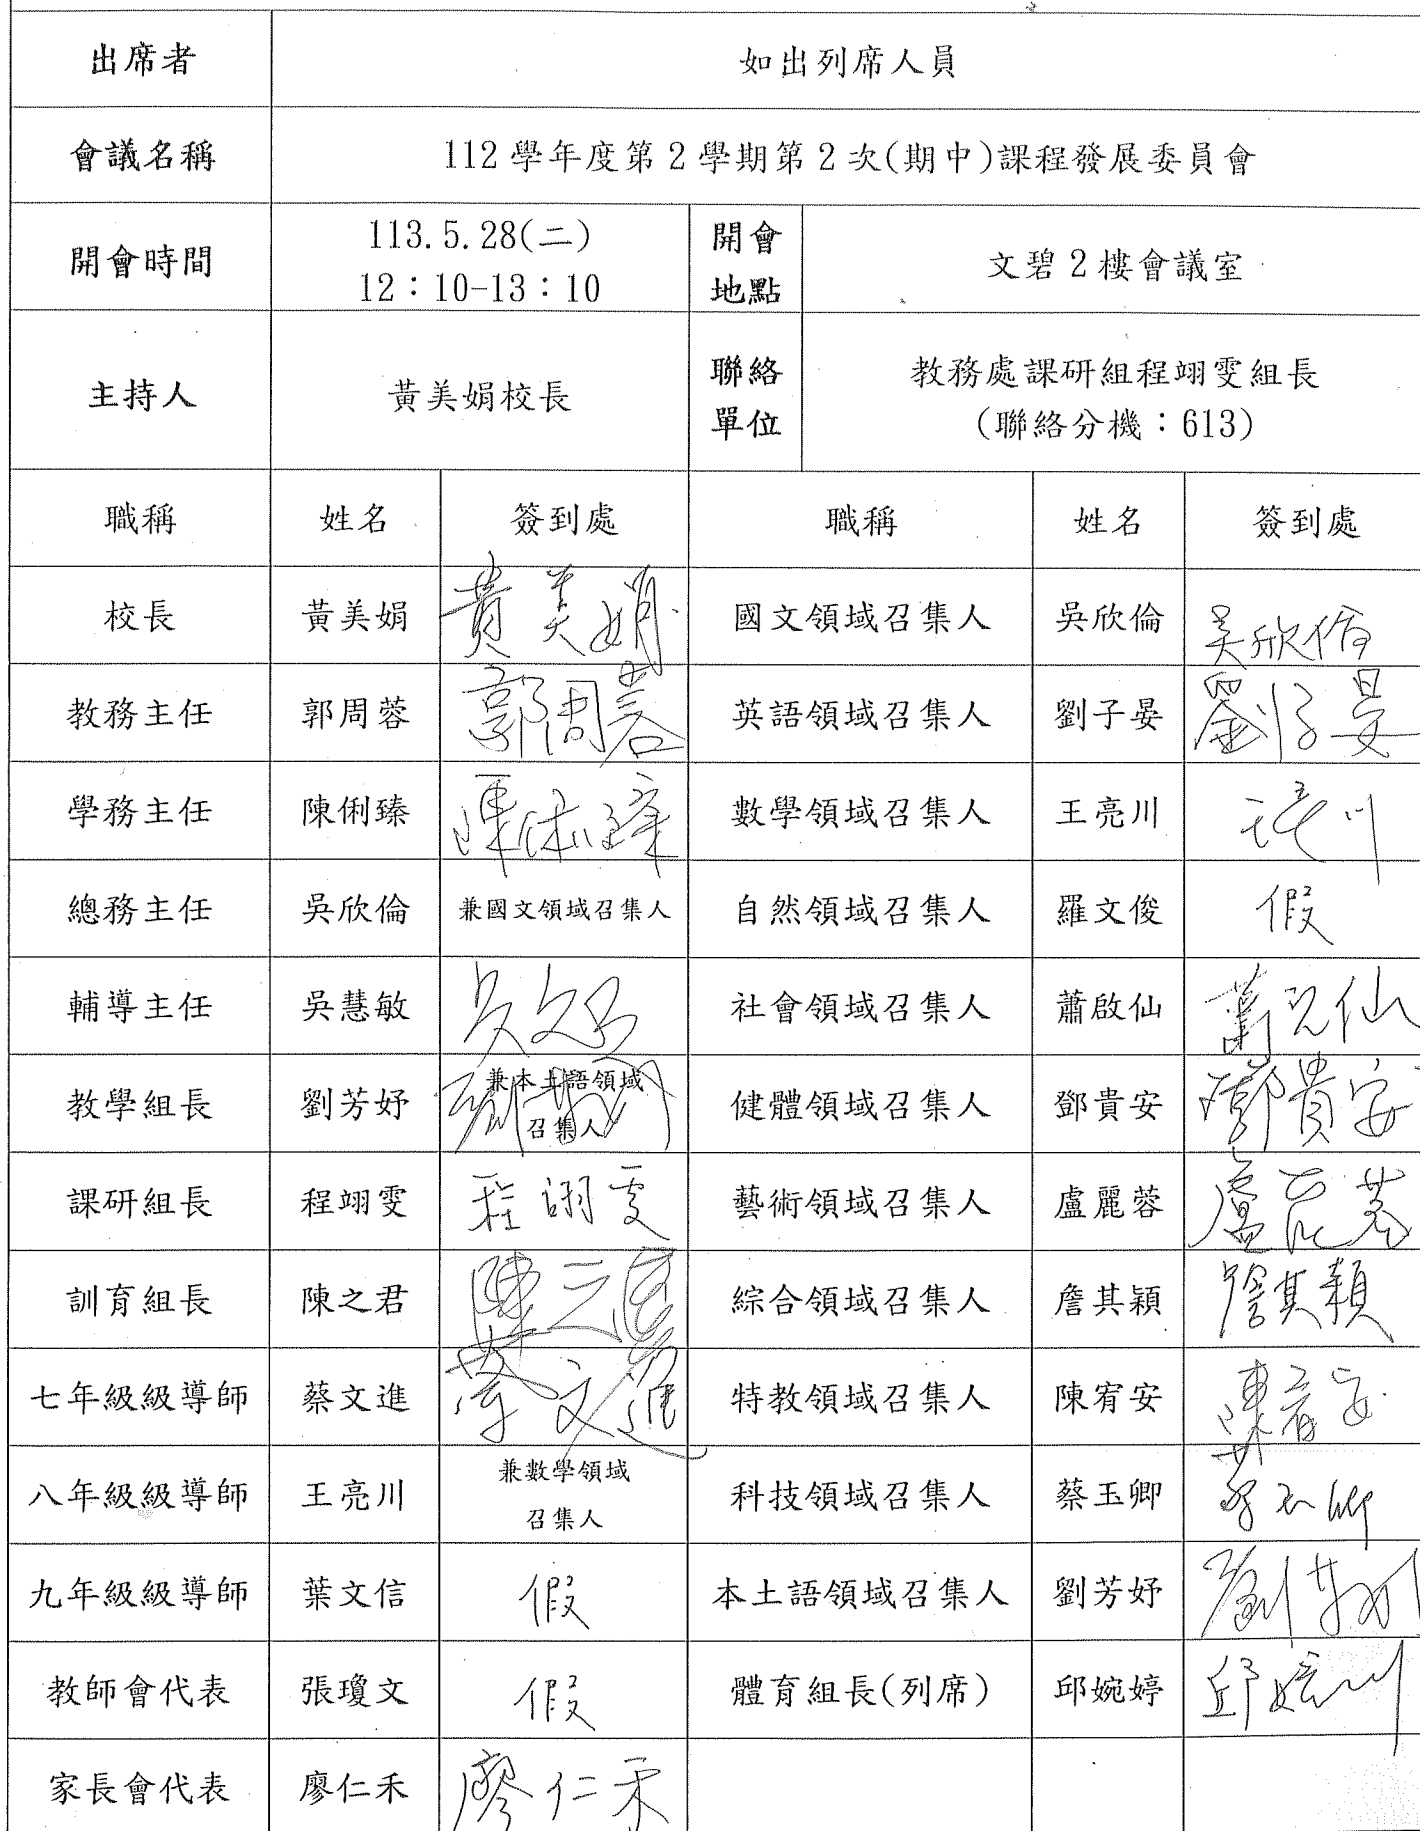 出席者 如出列席人員
會議名稱 112學年度第2學期第2次(期中)課程發展委員會
開會時間 113.5.28(二) 12：10-13：10 開會地點 文碧2樓會議室
主持人 黃美娟校長 聯絡單位 教務處課研組程翊雯組長 (聯絡分機：613)
職稱 姓名 簽到處 職稱 姓名 簽到處
校長 黃美娟 黃美娟 國文領域召集人 吳欣倫 吳欣倫
教務主任 郭周蓉 郭周蓉 英語領域召集人 劉子晏 劉子晏
學務主任 陳俐臻 陳俐臻 數學領域召集人 王亮川 王亮川
總務主任 吳欣倫 兼國文領域召集人 自然領域召集人 羅文俊 假
輔導主任 吳慧敏 社會領域召集人 蕭啟仙 蕭啟仙
教學組長 劉芳妤 兼本土語領域召集人 健體領域召集人 鄧貴安 鄧貴安
課研組長 程翊雯 程翊雯 藝術領域召集人 盧麗蓉 盧麗蓉
訓育組長 陳之君 陳之君 綜合領域召集人 詹其穎 詹其穎
七年級級導師 蔡文進 蔡文進 特教領域召集人 陳宥安 陳宥安
八年級級導師 王亮川 兼數學領域召集人 科技領域召集人 蔡玉卿 蔡玉卿
九年級級導師 葉文信 假 本土語領域召集人 劉芳妤 劉芳妤
教師會代表 張瓊文 假 體育組長(列席) 邱婉婷 邱婉婷
家長會代表 廖仁禾 廖仁禾